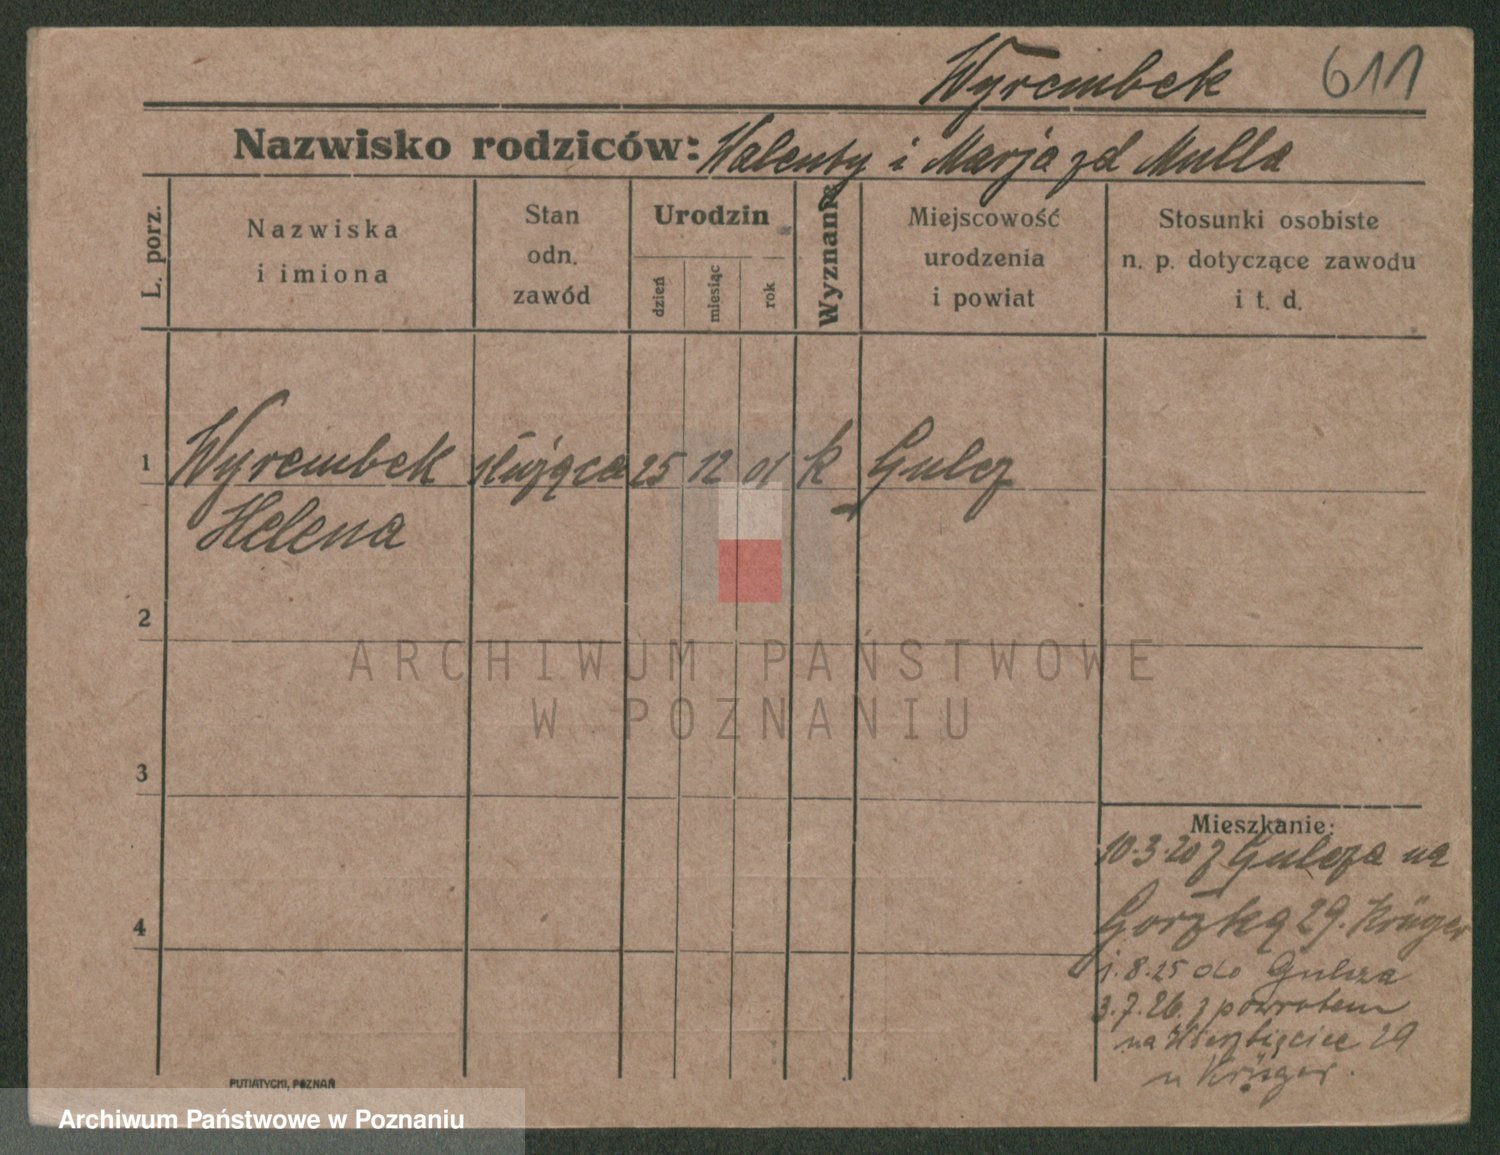 Wyrembek 611
Nazwisko rodziców: Walenty i Marja zd Mulla
L. porz.
Nazwiska
i imiona
Stan
odn.
zawód
Urodzin
dzień
miesiąc
rok
Wyznanie
Miejscowość
urodzenia
i powiat
Stosunki osobiste
n. p. dotyczące zawodu
i t. d.
1 Wyrembek służąca 25 12 01 k Gulcz
Helena
2
ARCHIWUM PAŃSTWOWE
W POZNANIU
3
4
Mieszkanie:
10.3.20 z Gulcza na
29. Krüger
1.8.25 do Gulcza
3.7.26. z powrotem
na Wierzbięcice 29
u Krüger.
PUTIATYCKI, POZNAŃ
Archiwum Państwowe w Poznaniu